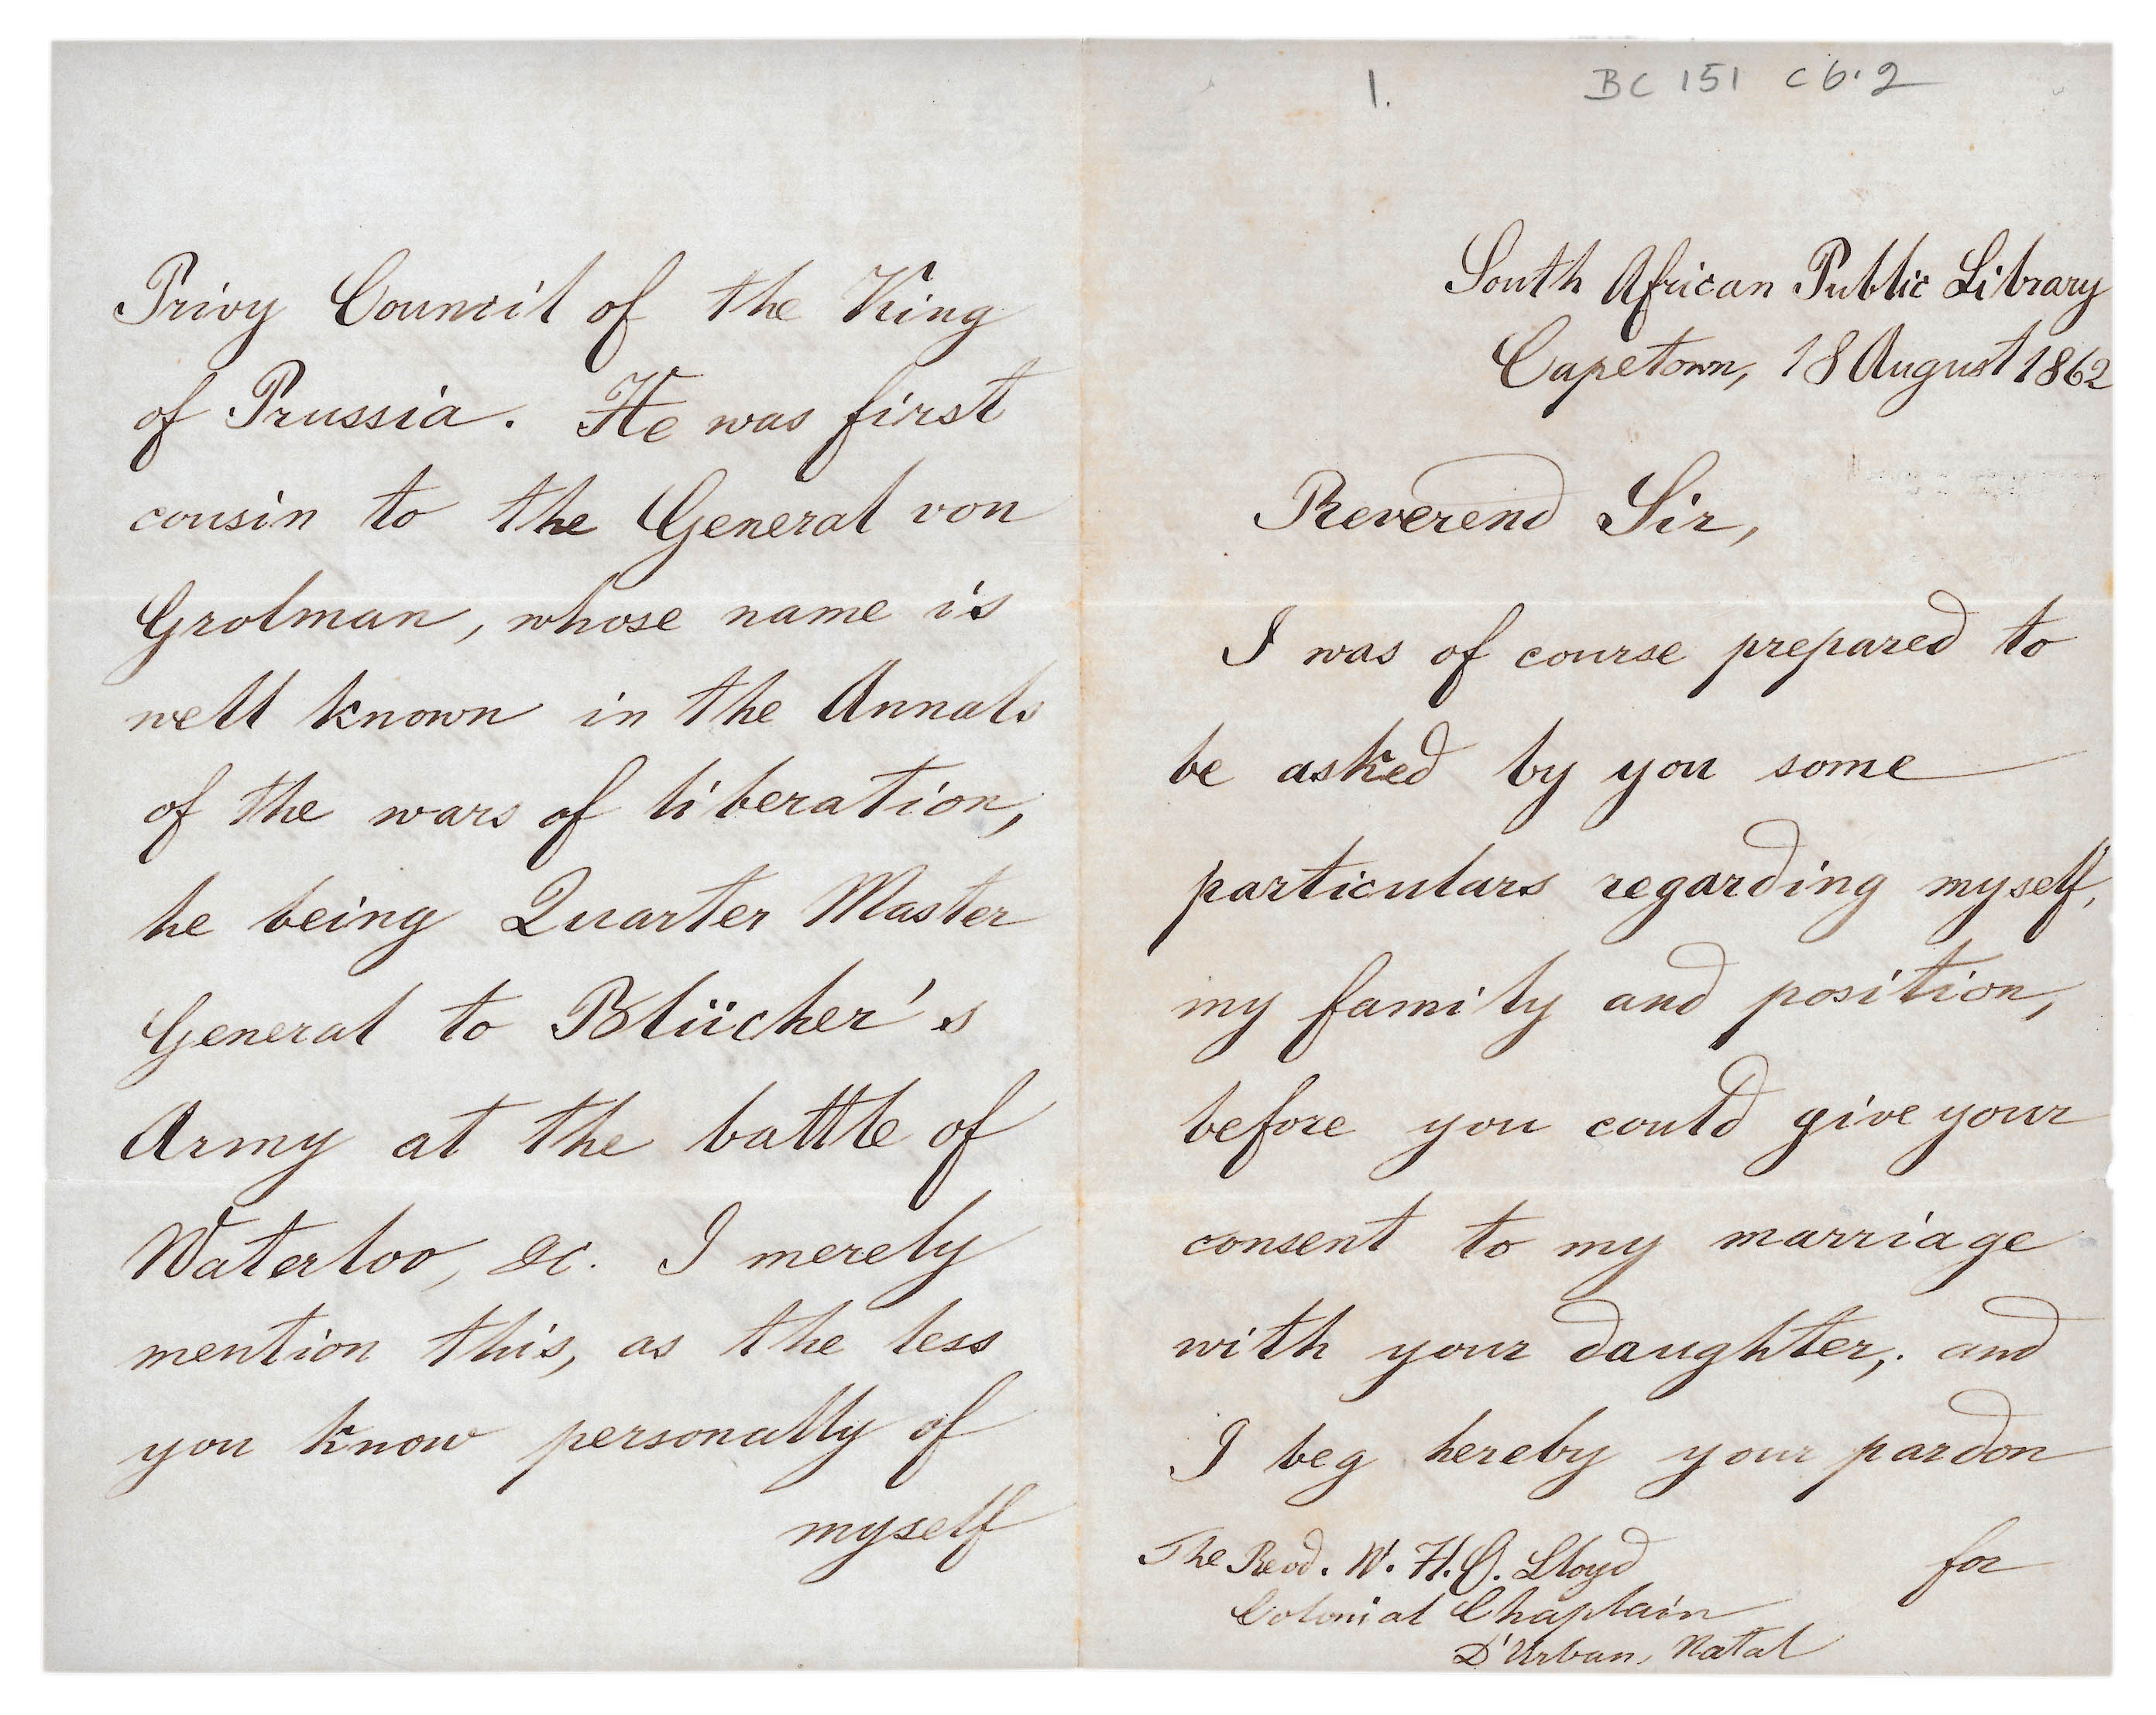 1. BC 151 C6.2
South African Public Library
Capetown, 18 August 1862
Reverend Sir,
I was of course prepared to
be asked by you some
particulars regarding myself,
my family and position,
before you could give your
consent to my marriage
with your daughter; and
I beg hereby your pardon
for
The Revd. W. H. C. Lloyd
Colonial Chaplain
D'Urban, Natal
Privy Council of the King
of Prussia. He was first
cousin to the General von
Grolman, whose name is
well known in the Annals
of the wars of liberation,
he being Quarter Master
General to Blücher's
Army at the battle of
Waterloo, &c. I merely
mention this, as the less
you know personally of
myself